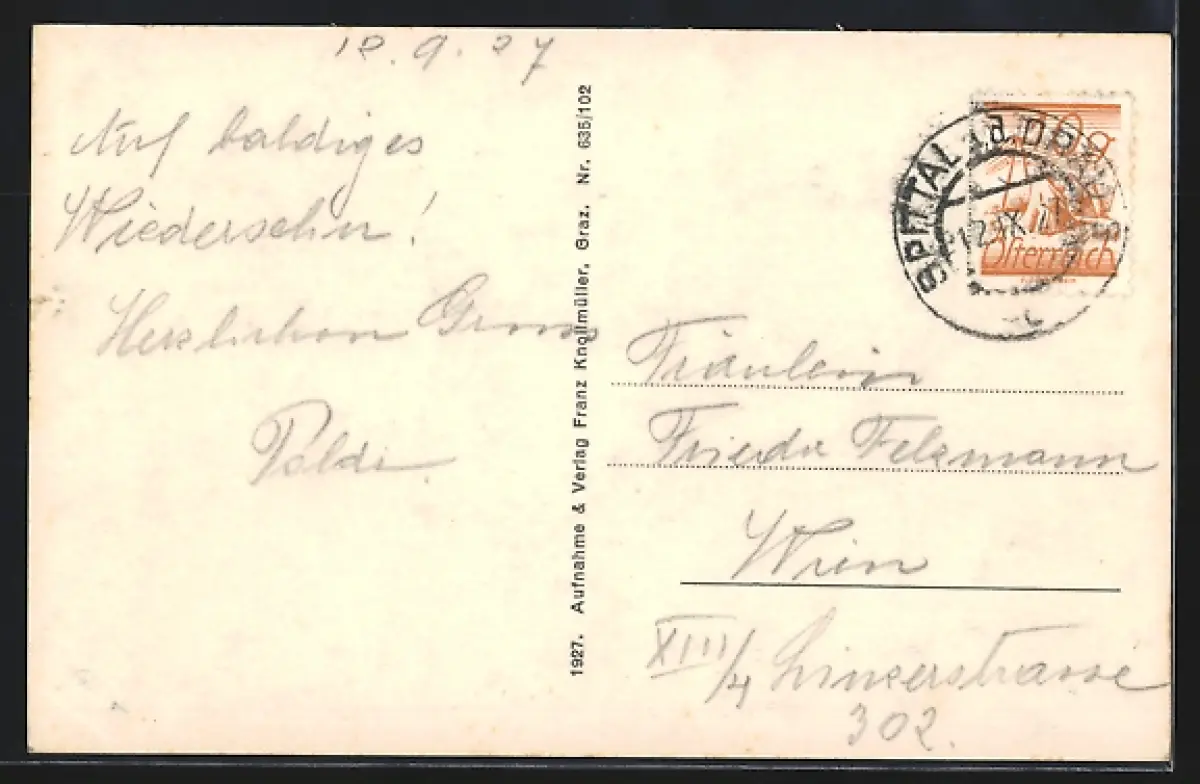 12.9.27
Auf baldiges
Wiedersehn!
Herzlichen Gruss
Poldi
1927. Aufnahme & Verlag Franz Knollmüller, Graz. Nr. 635/102
10g
Österreich
SPITTAL a.d. DRAU
Fräulein
Frieda Felzmann
Wien
XIII/4 Linzerstrasse
302.